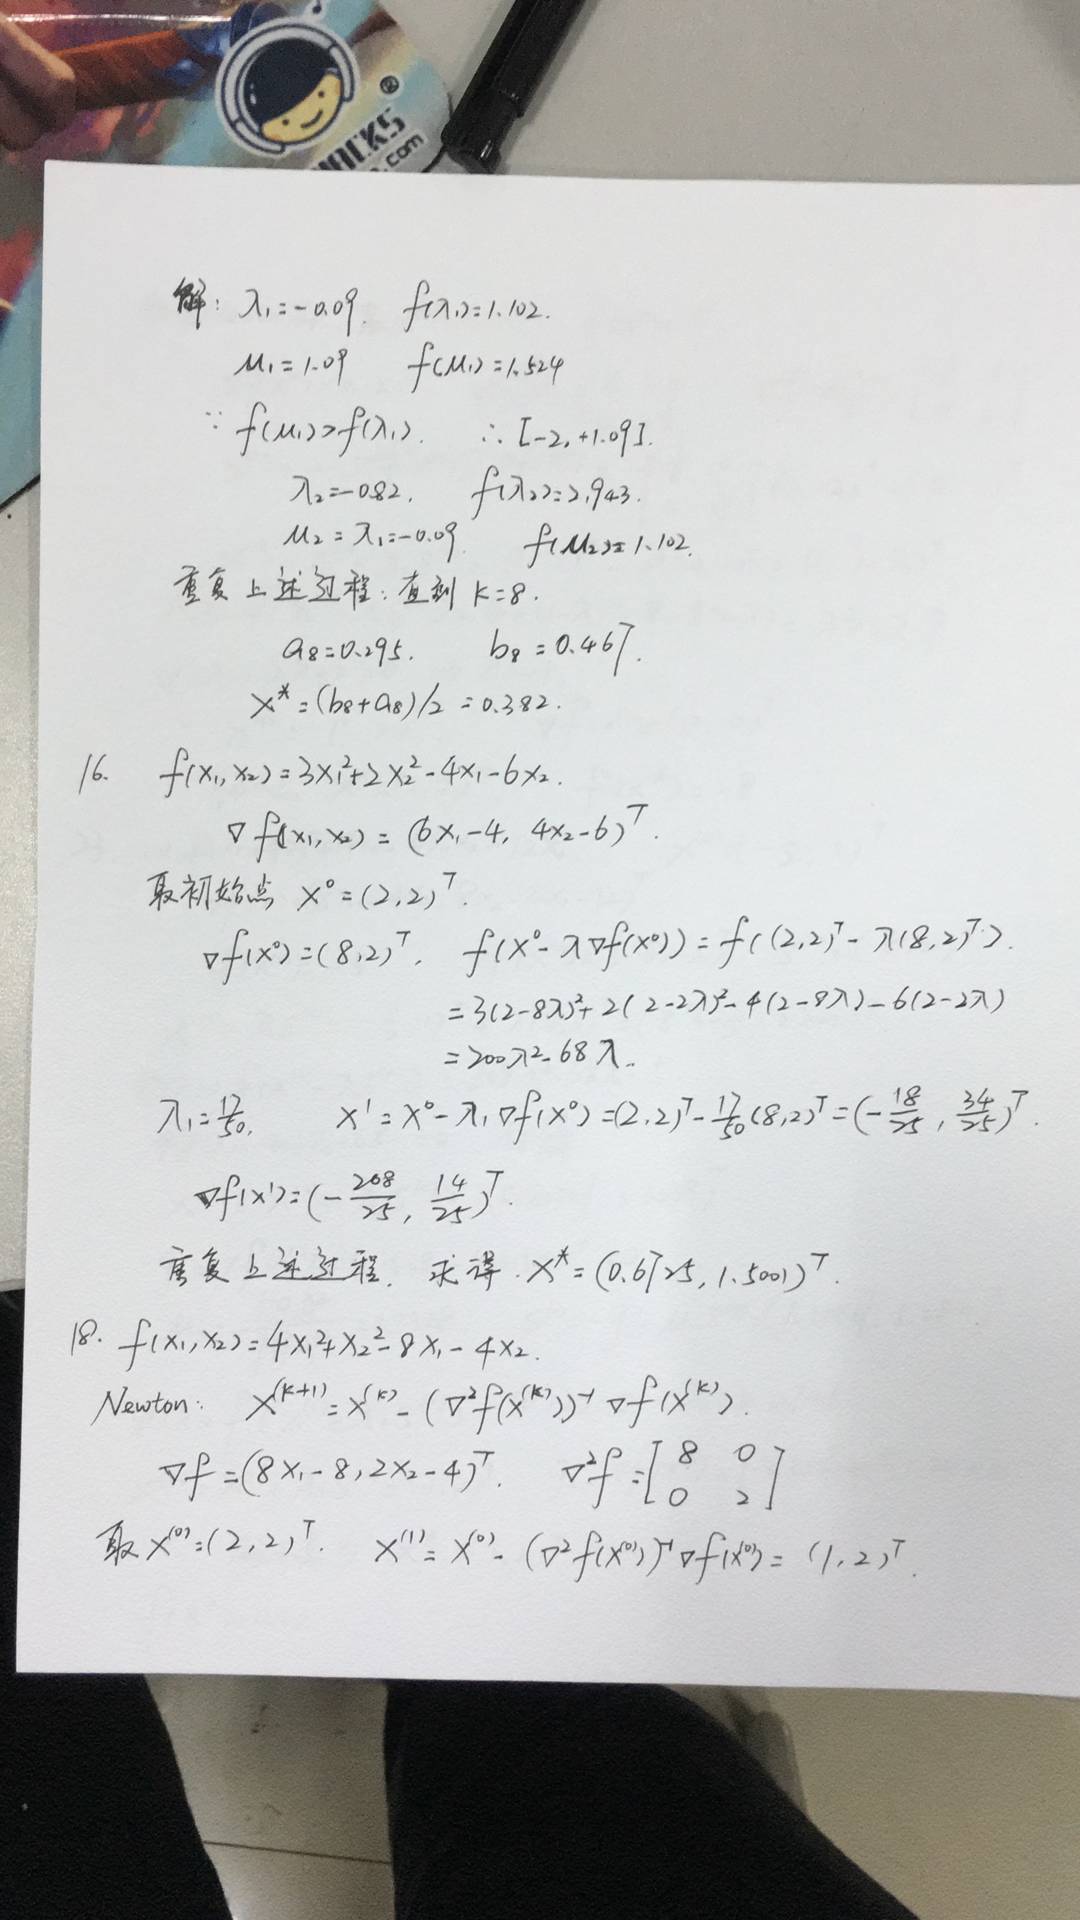 ®
ACKS
.com
解: λ₁=-0.09. f(λ₁)=1.102.
μ₁=1.09 f(μ₁)=1.524
∵ f(μ₁)>f(λ₁). ∴ [-2,+1.09].
λ₂=-0.82. f(λ₂)=2.943.
μ₂=λ₁=-0.09. f(μ₂)=1.102.
重复上述过程:直到 k=8.
a₈=0.295. b₈=0.467.
x*=(b₈+a₈)/2=0.382.
16. f(x₁,x₂)=3x₁²+2x₂²-4x₁-6x₂.
∇f(x₁,x₂)=(6x₁-4, 4x₂-6)ᵀ.
取初始点 x⁰=(2,2)ᵀ.
∇f(x⁰)=(8,2)ᵀ. f(x⁰-λ∇f(x⁰))=f((2,2)ᵀ-λ(8,2)ᵀ).
=3(2-8λ)²+2(2-2λ)²-4(2-8λ)-6(2-2λ)
=200λ²-68λ.
λ₁=17/50. x¹=x⁰-λ₁∇f(x⁰)=(2,2)ᵀ-17/50(8,2)ᵀ=(-18/25, 34/25)ᵀ.
∇f(x¹)=(-208/25, 14/25)ᵀ.
重复上述过程. 求得 x*=(0.6725, 1.5001)ᵀ.
18. f(x₁,x₂)=4x₁²+x₂²-8x₁-4x₂.
Newton: x⁽ᵏ⁺¹⁾=x⁽ᵏ⁾-(∇²f(x⁽ᵏ⁾))⁻¹∇f(x⁽ᵏ⁾).
∇f=(8x₁-8, 2x₂-4)ᵀ. ∇²f=[8 0
0 2]
取x⁽⁰⁾=(2,2)ᵀ. x⁽¹⁾=x⁽⁰⁾-(∇²f(x⁽⁰⁾))⁻¹∇f(x⁽⁰⁾)=(1,2)ᵀ.